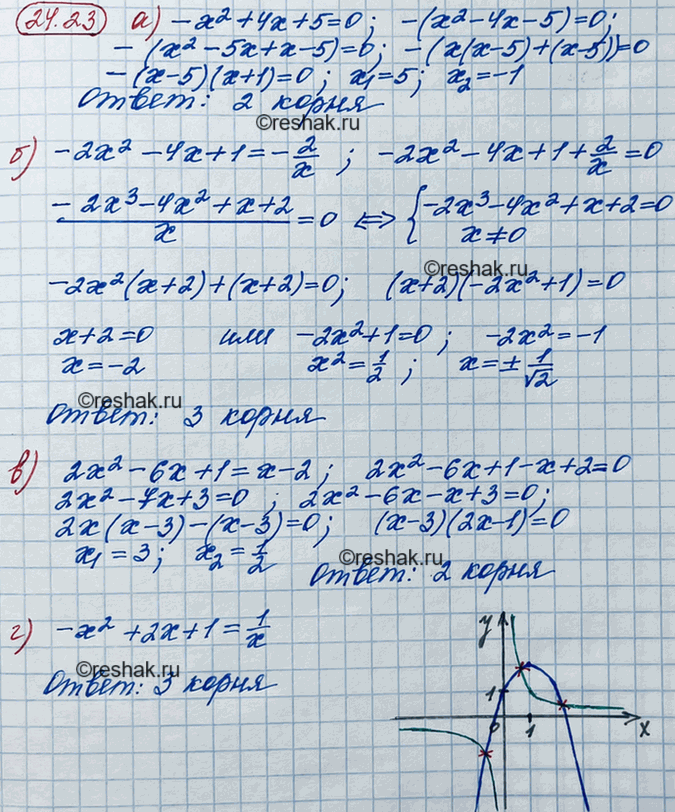 24.23 а) -x² + 4x + 5 = 0; -(x² - 4x - 5) = 0;
-(x² - 5x + x - 5) = 0; -(x(x-5) + (x-5)) = 0
-(x-5)(x+1) = 0; x₁ = 5; x₂ = -1
Ответ: 2 корня
©reshak.ru
б) -2x² - 4x + 1 = -2/x; -2x² - 4x + 1 + 2/x = 0
(-2x³ - 4x² + x + 2)/x = 0 ⟺ { -2x³ - 4x² + x + 2 = 0
x ≠ 0
©reshak.ru
-2x²(x+2) + (x+2) = 0; (x+2)(-2x² + 1) = 0
x + 2 = 0 или -2x² + 1 = 0; -2x² = -1
x = -2 x² = 1/2; x = ± 1/√2
©reshak.ru
Ответ: 3 корня
в) 2x² - 6x + 1 = x - 2; 2x² - 6x + 1 - x + 2 = 0
2x² - 7x + 3 = 0; 2x² - 6x - x + 3 = 0;
2x(x-3) - (x-3) = 0; (x-3)(2x-1) = 0
x₁ = 3; x₂ = 1/2
©reshak.ru
Ответ: 2 корня
г) -x² + 2x + 1 = 1/x
©reshak.ru
Ответ: 3 корня
y
1
0 1 x